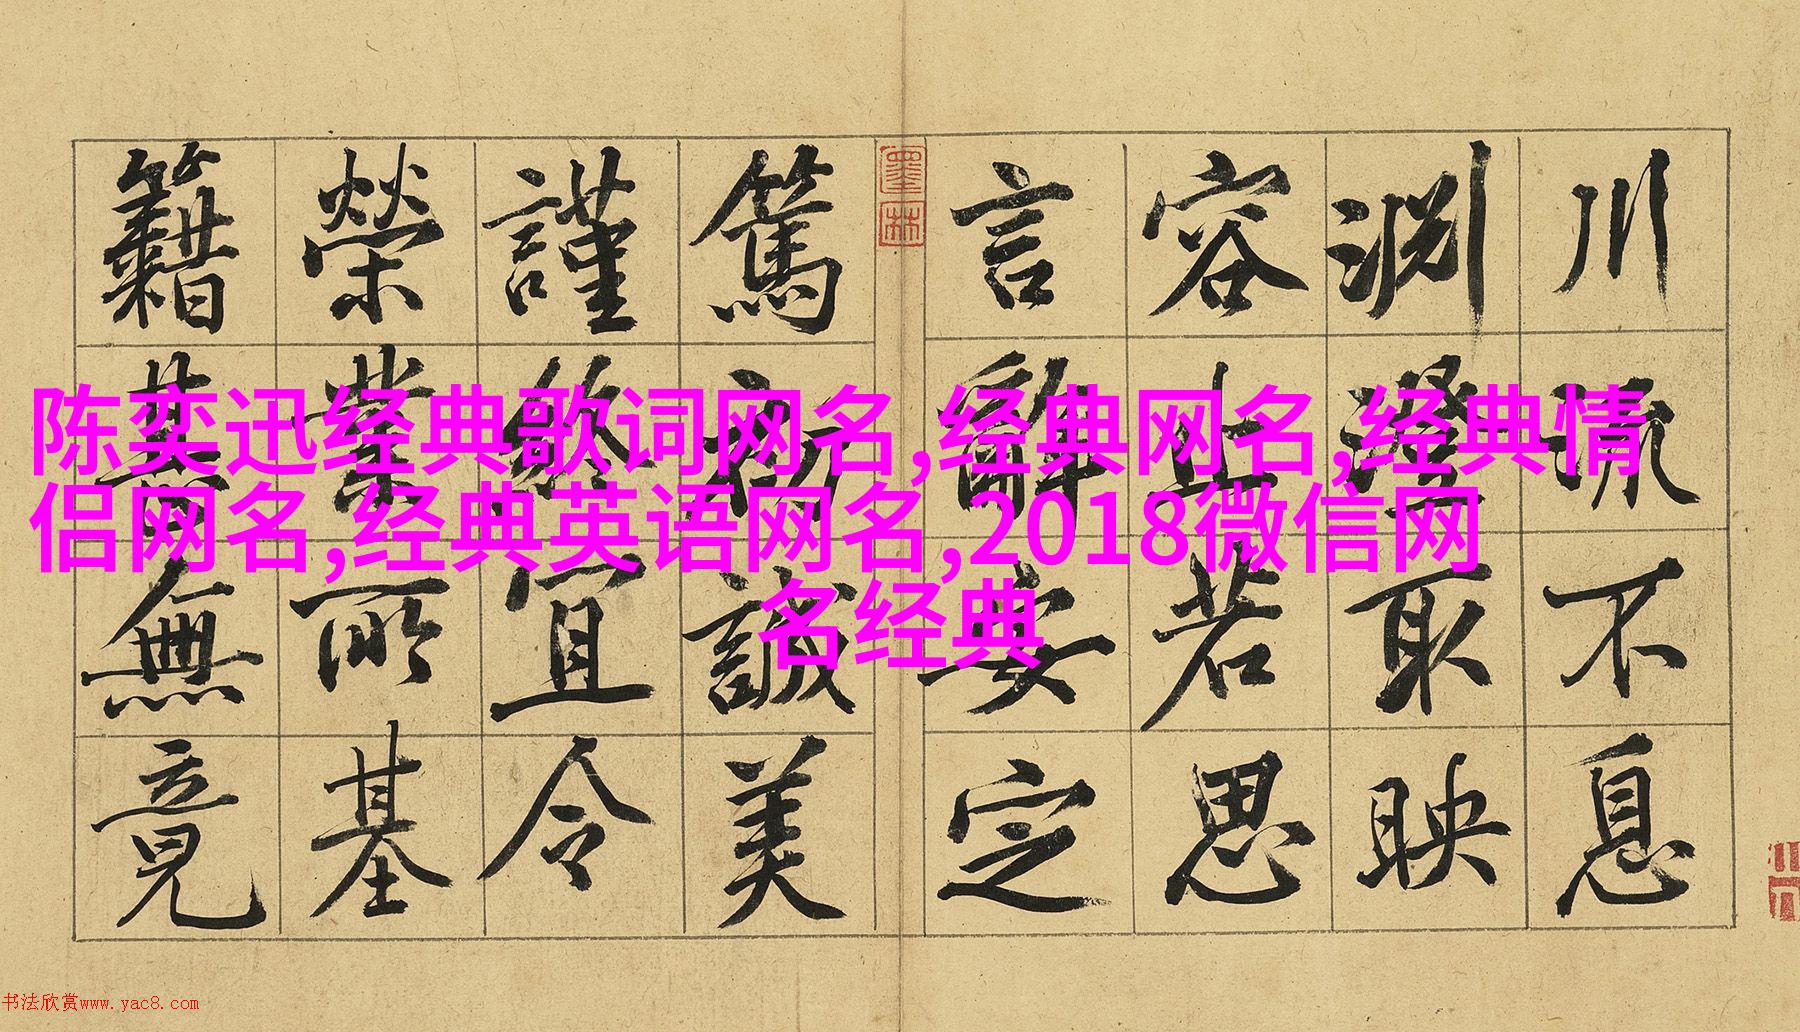 川流不息
淵澄取映
容止若思
言辭安定
篤初誠美
謹終宜令
榮業所基
籍甚無竟
墨林
陈奕迅经典歌词网名,经典网名,经典情
侣网名,经典英语网名,2018微信网
名经典
书法欣赏www.yac8.com